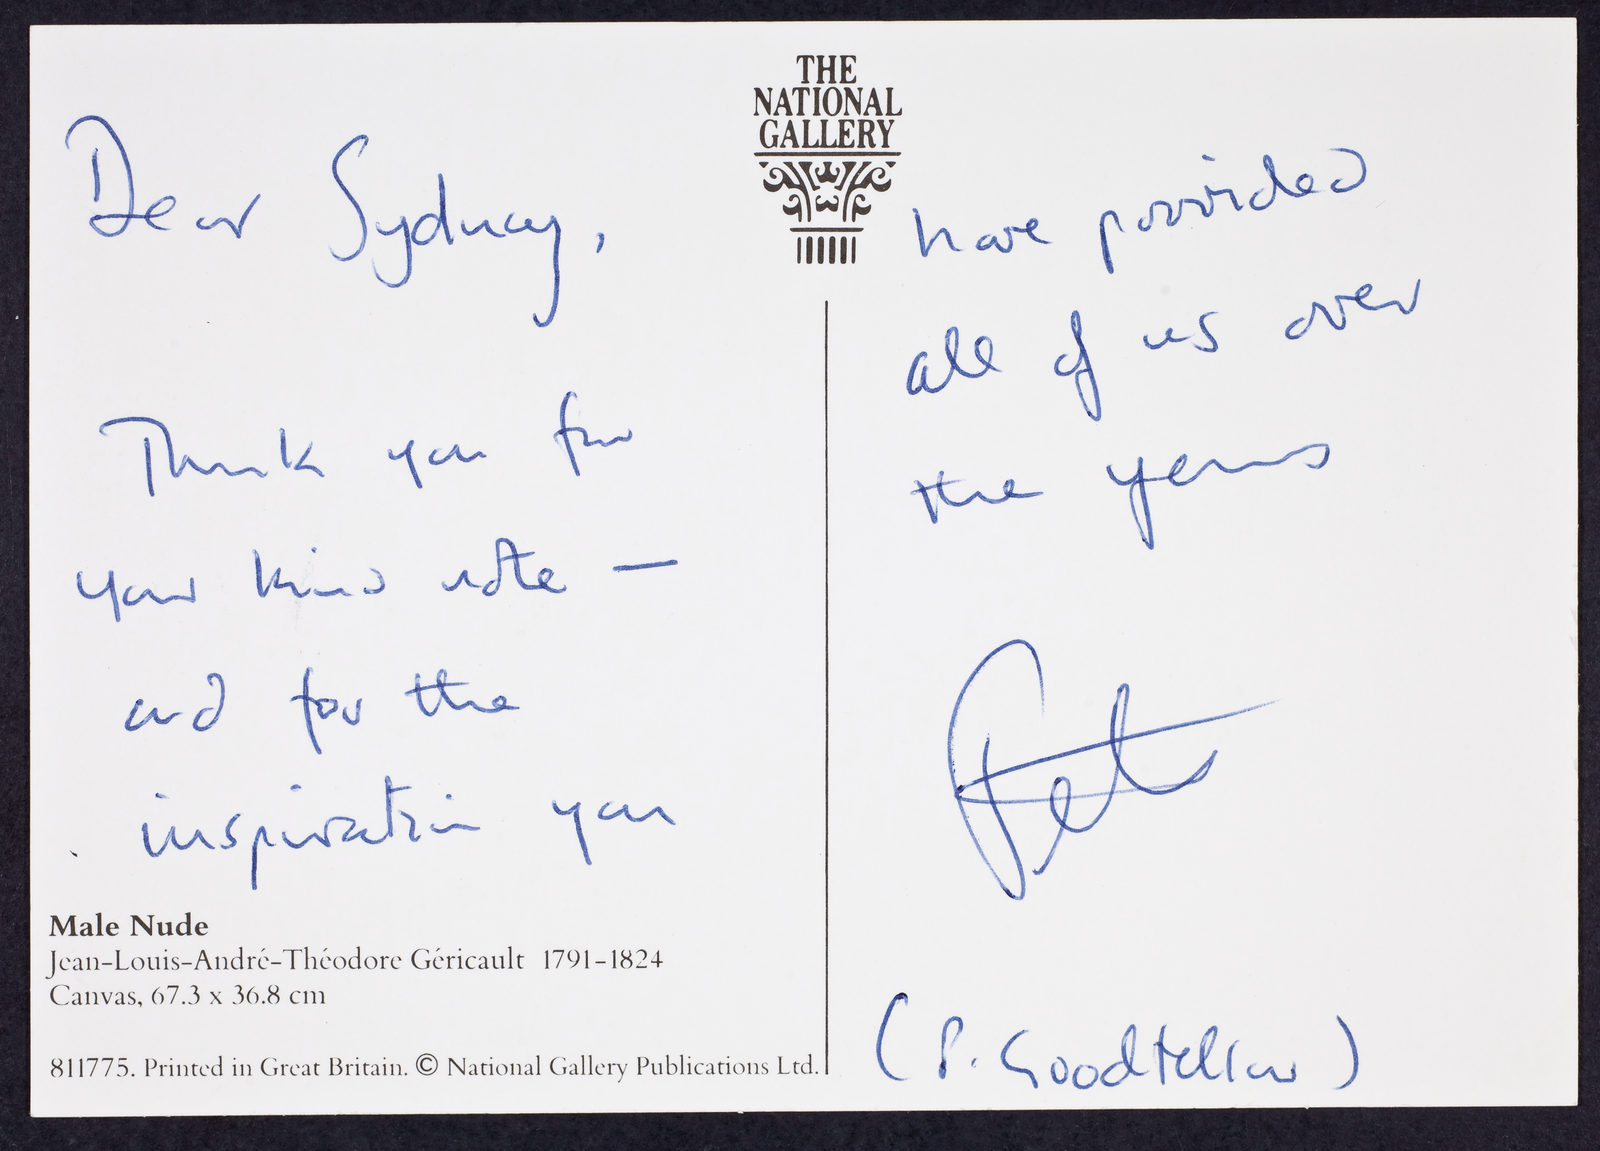 THE
NATIONAL
GALLERY
Dear Sydney,
Thank you for
your kind note —
and for the
inspiration you
have provided
all of us over
the years
Peter
(P. Goodfellow)
Male Nude
Jean-Louis-André-Théodore Géricault 1791-1824
Canvas, 67.3 x 36.8 cm
811775. Printed in Great Britain. © National Gallery Publications Ltd.